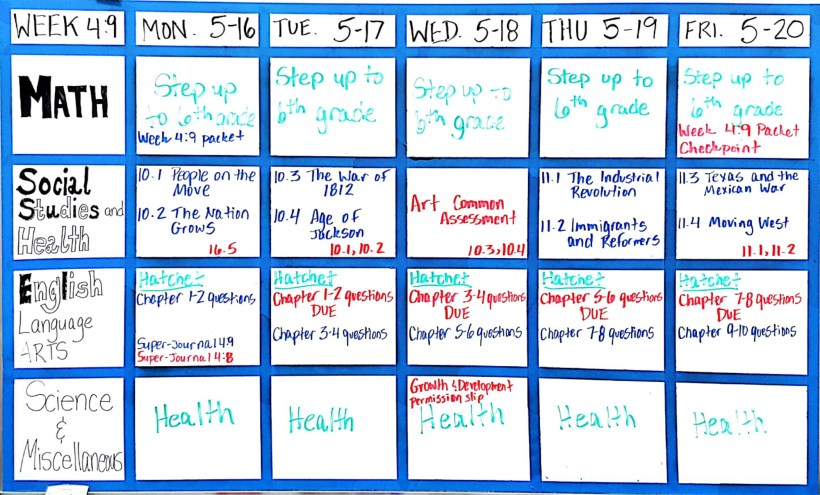 WEEK 4:9
MON. 5-16
TUE. 5-17
WED. 5-18
THU 5-19
FRI. 5-20
MATH
Step up
to 6th grade
Week 4:9 packet
Step up to
6th grade
Step up to
6th grade
Step up to
6th grade
Step up to
6th grade
Week 4:9 Packet
Checkpoint
Social
Studies and
Health
10.1 People on the
Move
10.2 The Nation
Grows
16.5
10.3 The War of
1812
10.4 Age of
Jackson
10.1, 10.2
Art Common
Assessment
10.3, 10.4
11.1 The Industrial
Revolution
11.2 Immigrants
and Reformers
11.3 Texas and the
Mexican War
11.4 Moving West
11.1, 11.2
English
Language
ARTS
Hatchet
Chapter 1-2 questions
Super-Journal 4:9
Super-Journal 4:8
Hatchet
Chapter 1-2 questions
DUE
Chapter 3-4 questions
Hatchet
Chapter 3-4 questions
DUE
Chapter 5-6 questions
Hatchet
Chapter 5-6 questions
DUE
Chapter 7-8 questions
Hatchet
Chapter 7-8 questions
DUE
Chapter 9-10 questions
Science
&
Miscellaneous
Health
Health
Growth & Development
permission slip
Health
Health
Health